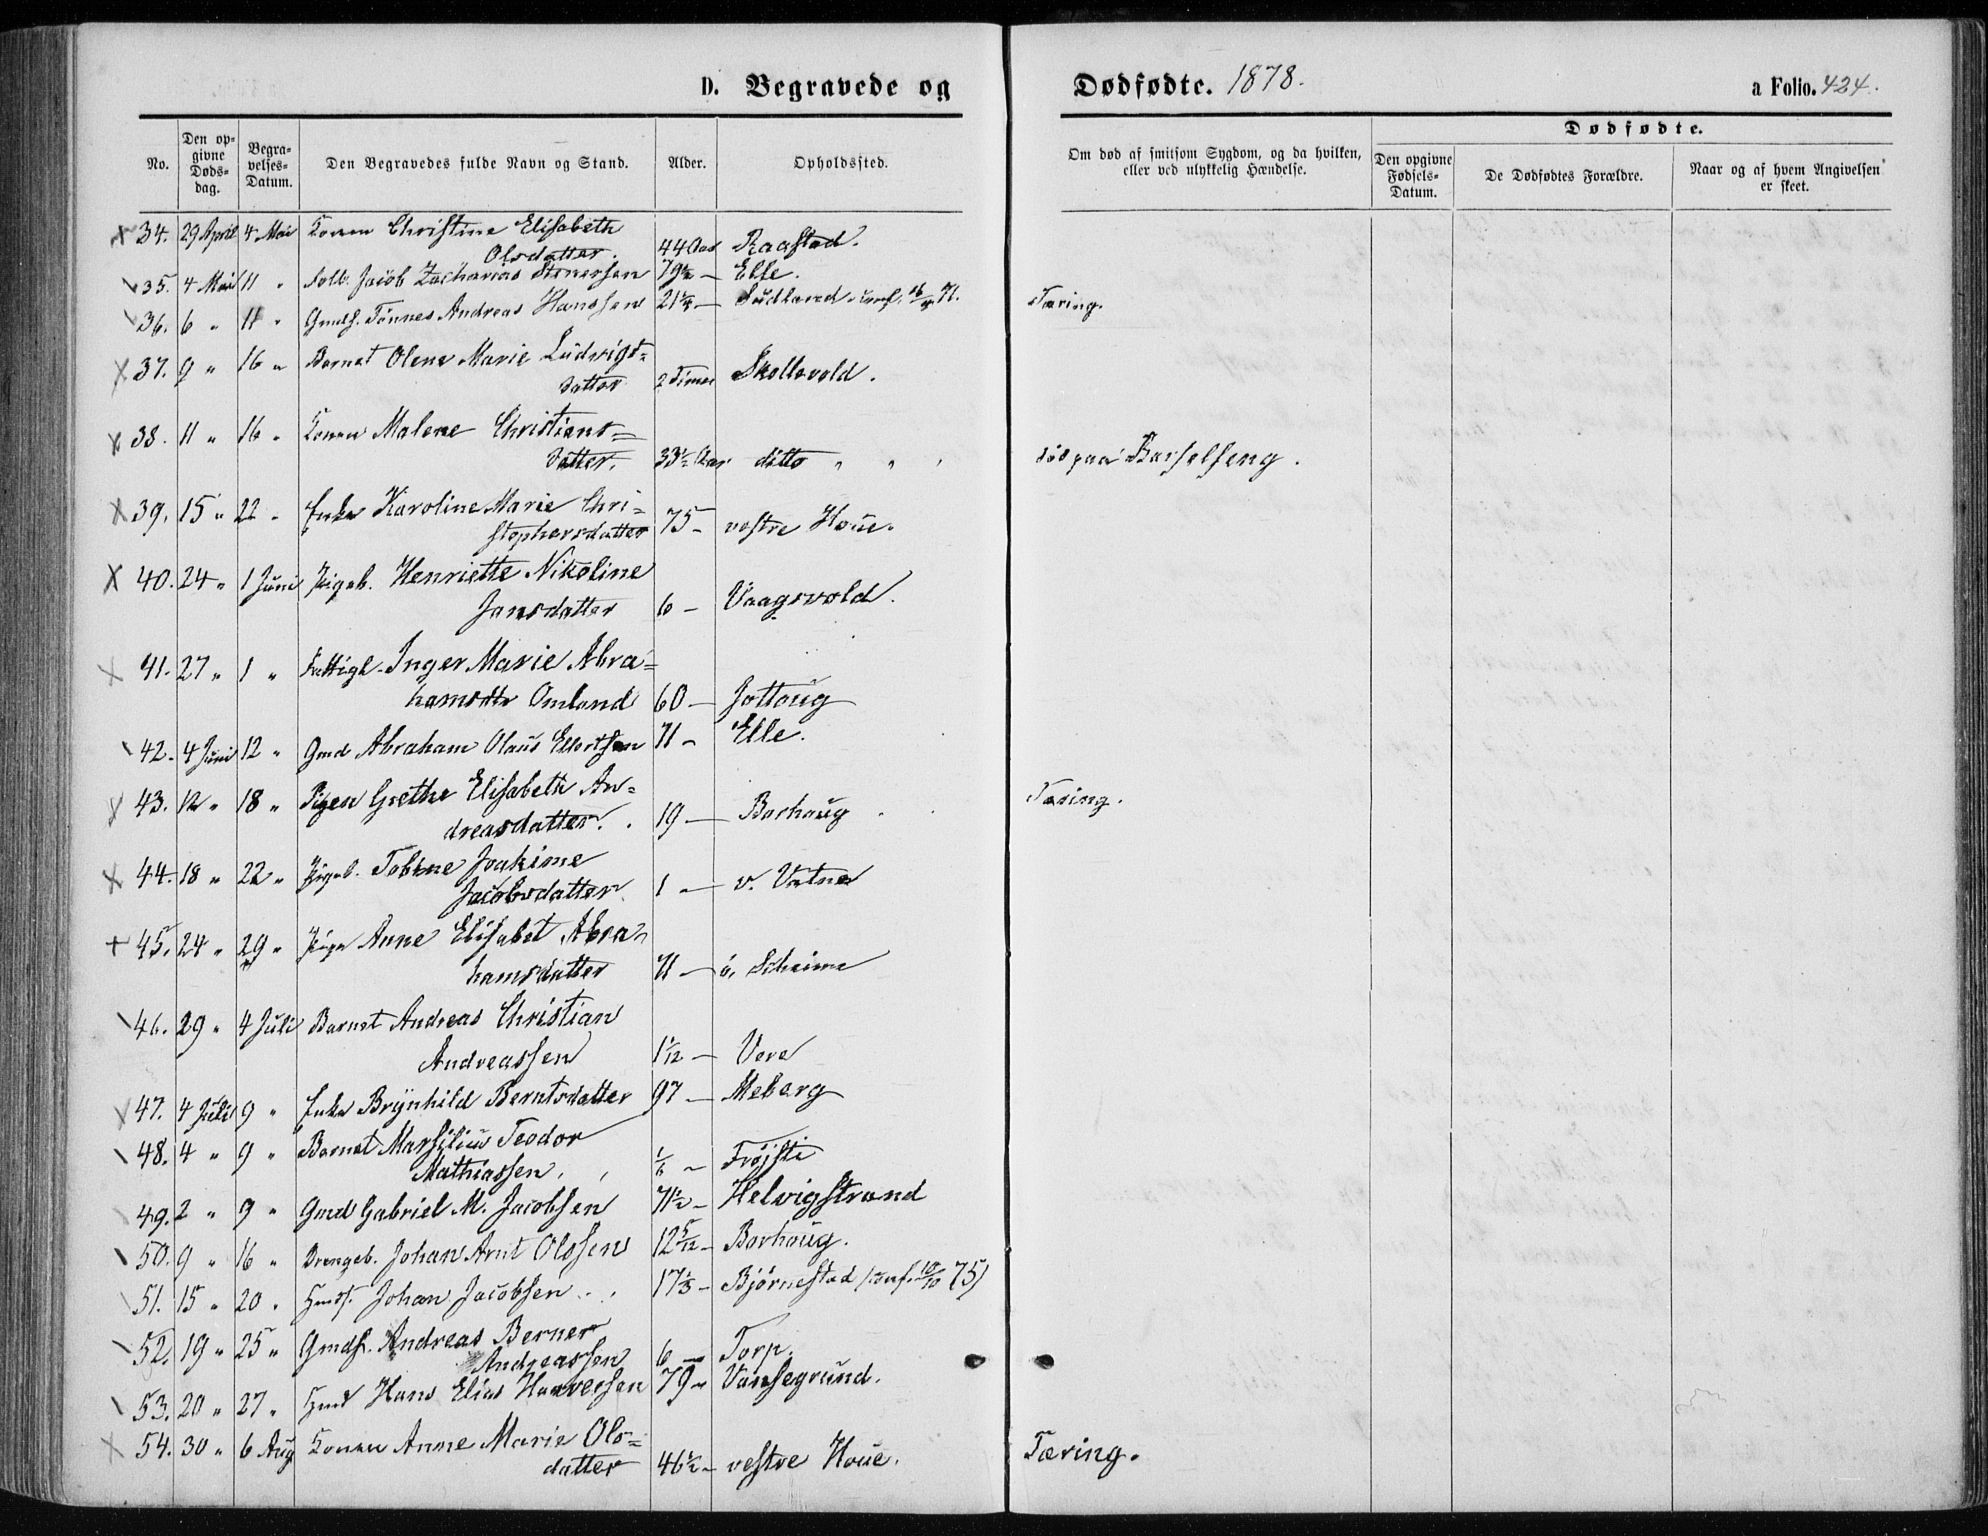 D. Begravede og Dødfødte. 1878. a Folio. 424.
No. Den opgivne Døds-dag. Begravelses-Datum. Den Begravedes fulde Navn og Stand. Alder. Opholdssted. Om død af smitsom Sygdom, og da hvilken, eller ved ulykkelig Hændelse. Dødfødte. Den opgivne Fødsels-Datum. De Dødfødtes Forældre. Naar og af hvem Angivelsen er skeet.
34. 29 April 4 Mai Konen Christine Elisabeth
Olsdatter. 44 Aar Raastad.
35. 4 Mai 11 " Jacob Zacharias 79½ — Elle.
36. 6 " 11 " Gmds. Tønnes Andreas Hanssen 21¼ — Sudland Tæring.
37. 9 " 16 " Barnet Olene Marie Ludvigs-
datter 2 Timer Skollevold.
38. 11 " 16 " Konen Malene Christians=
datter. 33½ Aar ditto " " død paa Barselseng.
39. 15 " 22 " Enke Karoline Marie Chri=
stophersdatter 75 — vestre Houe.
40. 24 " 1 Juni Pigeb. Henriette Nikoline
Jansdatter 6 — Vaagsvold.
41. 27 " 1 " Fattigl. Inger Marie Abra=
hamsdtr Omland 60 — Jottoug
42. 4 Juni 12 " Gmd Abraham Olaus Ellertsen 71 — Elle.
43. 12 " 18 " Pigen Grethe Elisabeth An=
dreasdatter. 19 — Borhaug Tæring.
44. 18 " 22 " Pigeb. Tobine Joakime
Jacobsdatter 1 — v. Vatne
45. 24 " 29 " Pige Anne Elisabet Abra=
hamsdatter 71 — ö. Scheime
46. 29 " 4 Juli Barnet Andreas Christian
Andreassen 1 1/12 — Vere
47. 4 Juli 9 " Enke Brynhild Berntsdatter 97 — Meberg
48. 4 " 9 " Barnet Marsilius Teodor
Mathiassen 1/6 — Frøjsti
49. 2 " 9 " Gmd Gabriel M. Jacobsen 71½ — Helvigstrand
50. 9 " 16 " Drengeb. Johan Arnt Olssen 12 5/12 — Borhaug.
51. 15 " 20 " Johan Jacobsen 17⅓ — Bjørnestad (conf. 10/10 75)
52. 19 " 25 " Gmds. Andreas Berner
Andreassen 6 — Torp.
53. 20 " 27 " Hans Elias Haaversen 79 " Vansegrund.
54. 30 " 6 Aug Konen Anne Marie Ols=
datter 46½ — vestre Houe. Tæring.